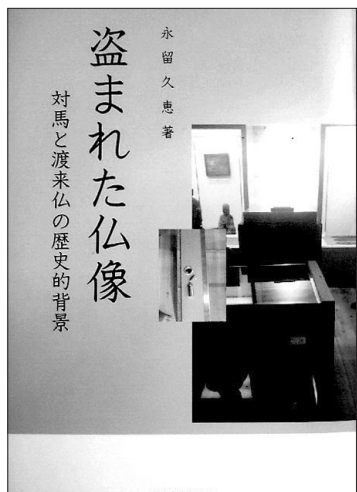 永留久恵著
盗まれた仏像
対馬と渡来仏の歴史的背景